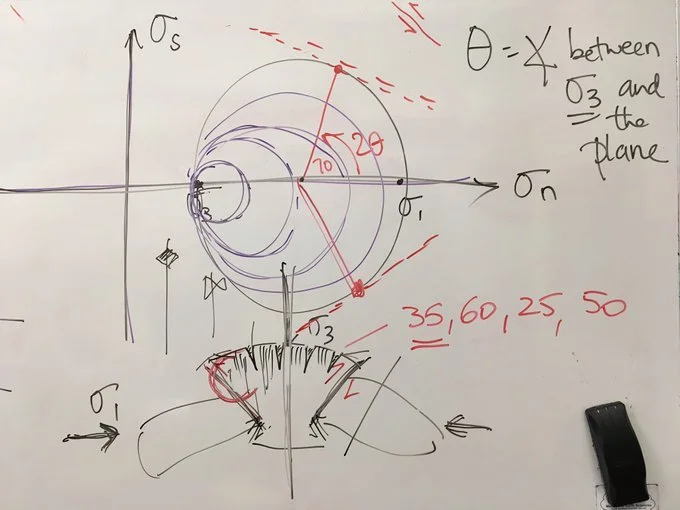 σs
θ = ∡ between
σ3 and
the
plane
2θ
70
σn
σ1
3
σ3
35, 60, 25, 50
σ1